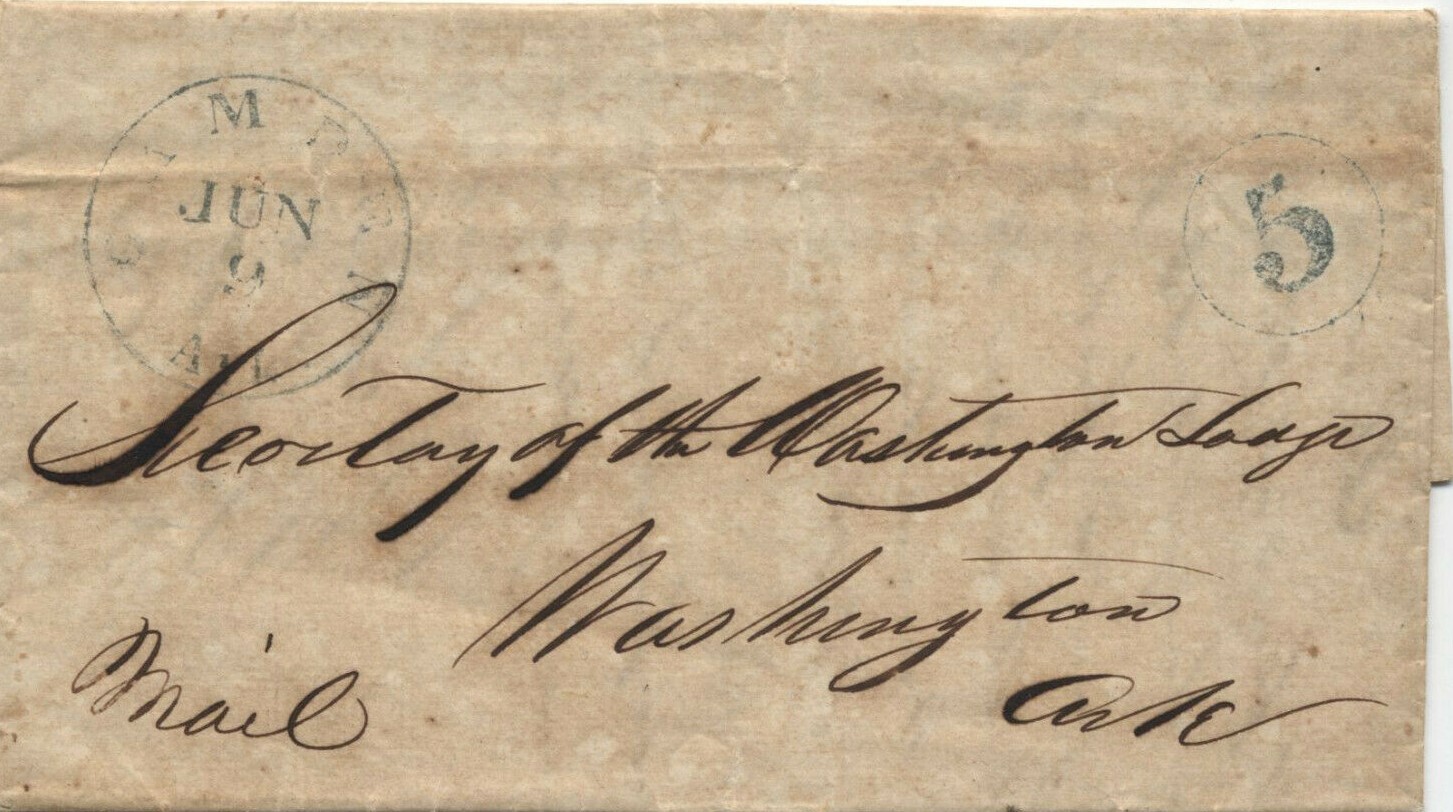 JUN
9
5
Secretay of the Washington Lodge
Washington
Ark
Mail